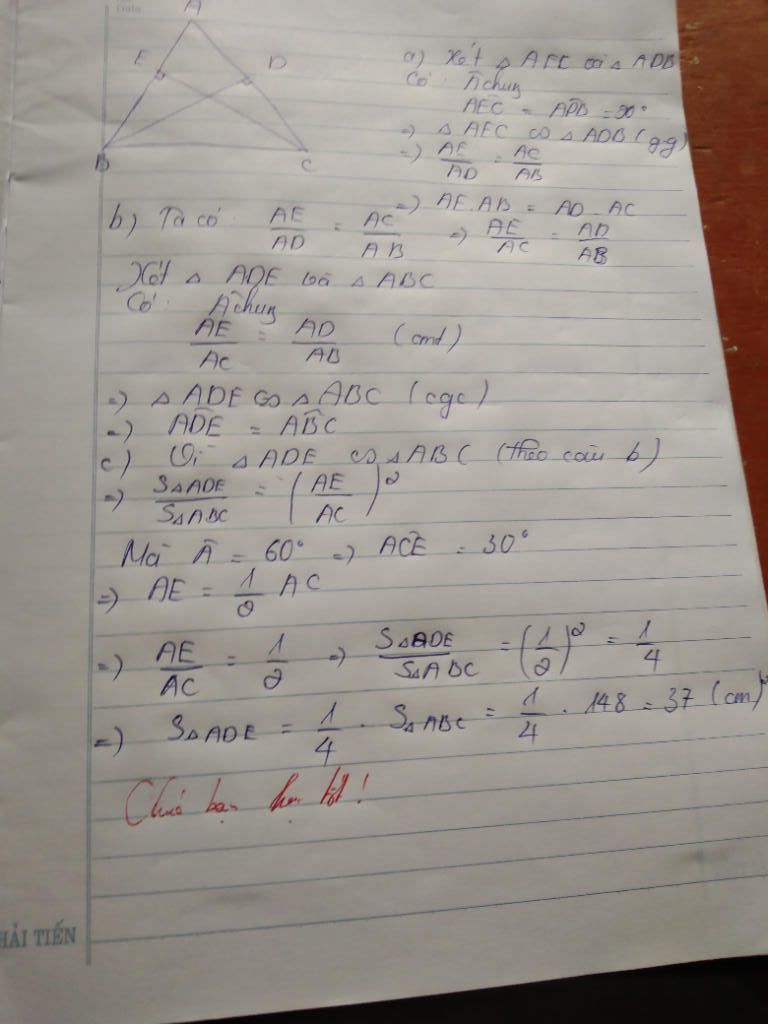 A
E
D
B
C
a) Xét △ AEC và △ ADB
Có: Â chung
AÊC = AD̂B = 90°
=> △ AEC ∽ △ ADB (gg)
=> AE/AD = AC/AB
=> AE.AB = AD.AC
b) Ta có: AE/AD = AC/AB => AE/AC = AD/AB
Xét △ ADE và △ ABC
Có: Â chung
AE/AC = AD/AB (cmt)
=> △ ADE ∽ △ ABC (cgc)
=> AD̂E = AB̂C
c) Vì △ ADE ∽ △ ABC (theo câu b)
=> S△ADE/S△ABC = (AE/AC)²
Mà Â = 60° => AĈE = 30°
=> AE = 1/2 AC
=> AE/AC = 1/2 => S△ADE/S△ABC = (1/2)² = 1/4
=> S△ADE = 1/4 . S△ABC = 1/4 . 148 = 37 (cm)²
Chúc bạn học tốt!
HẢI TIẾN